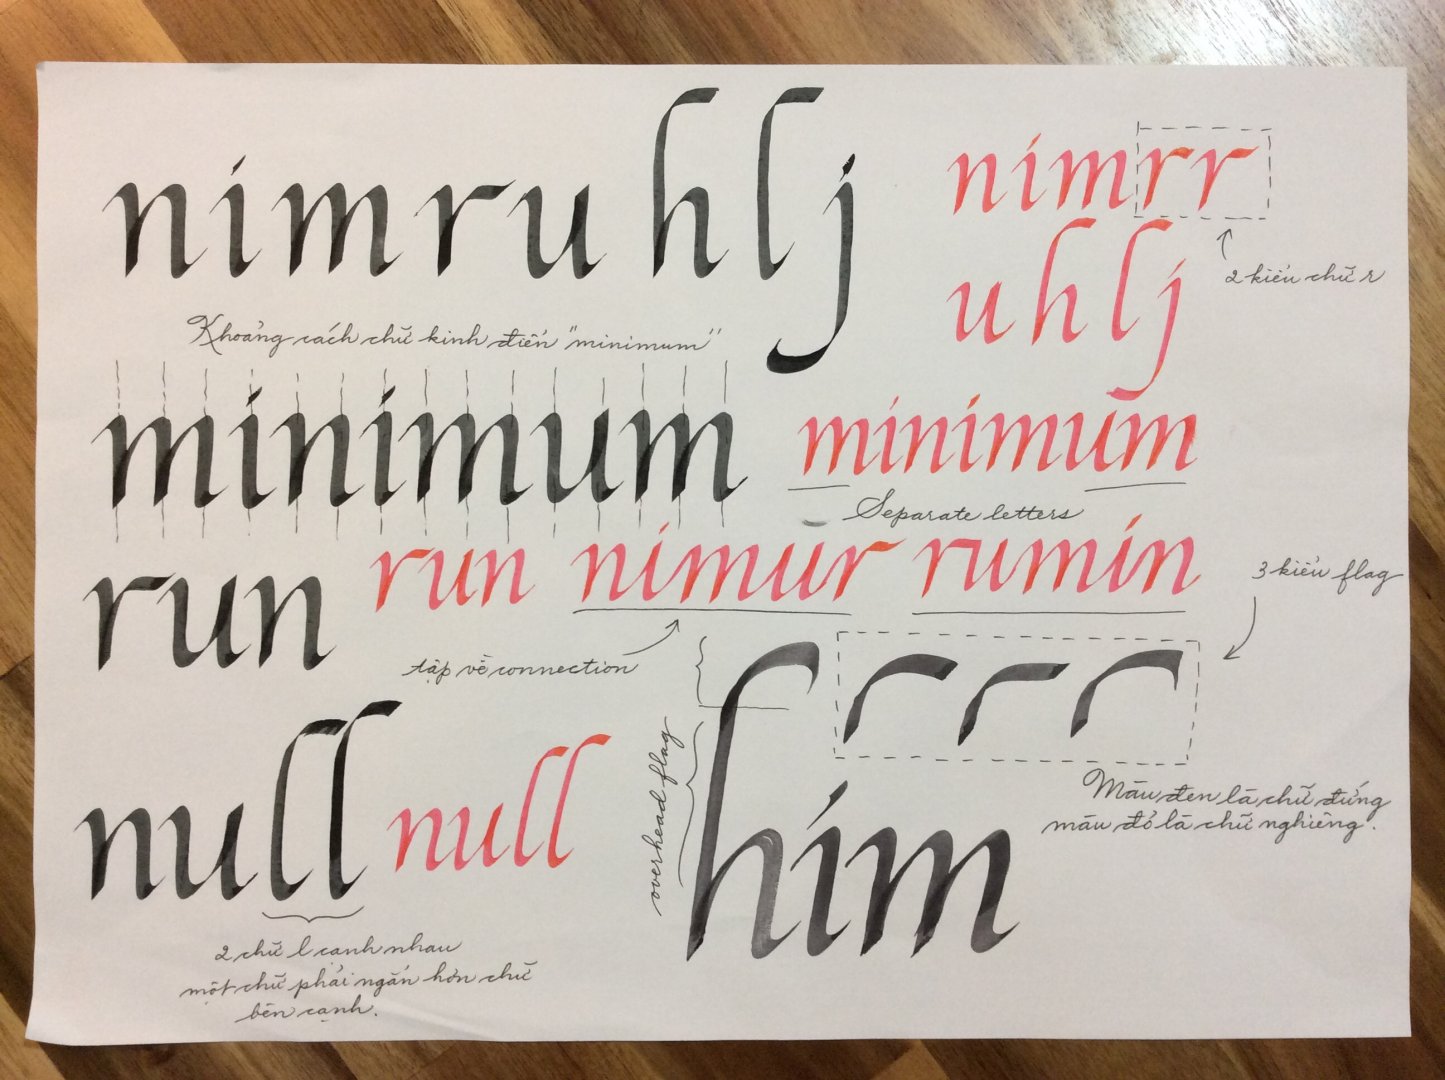 nimruhlj
nimrr
2 kiểu chữ r
uhlj
Khoảng cách chữ kinh điển "minimum"
minimum
minimum
Separate letters
run
run nimur rumin
3 kiểu flag
tập về connection
overhead flag
him
Màu đen là chữ đứng
màu đỏ là chữ nghiêng.
null
null
2 chữ l cạnh nhau
một chữ phải ngắn hơn chữ
bên cạnh.